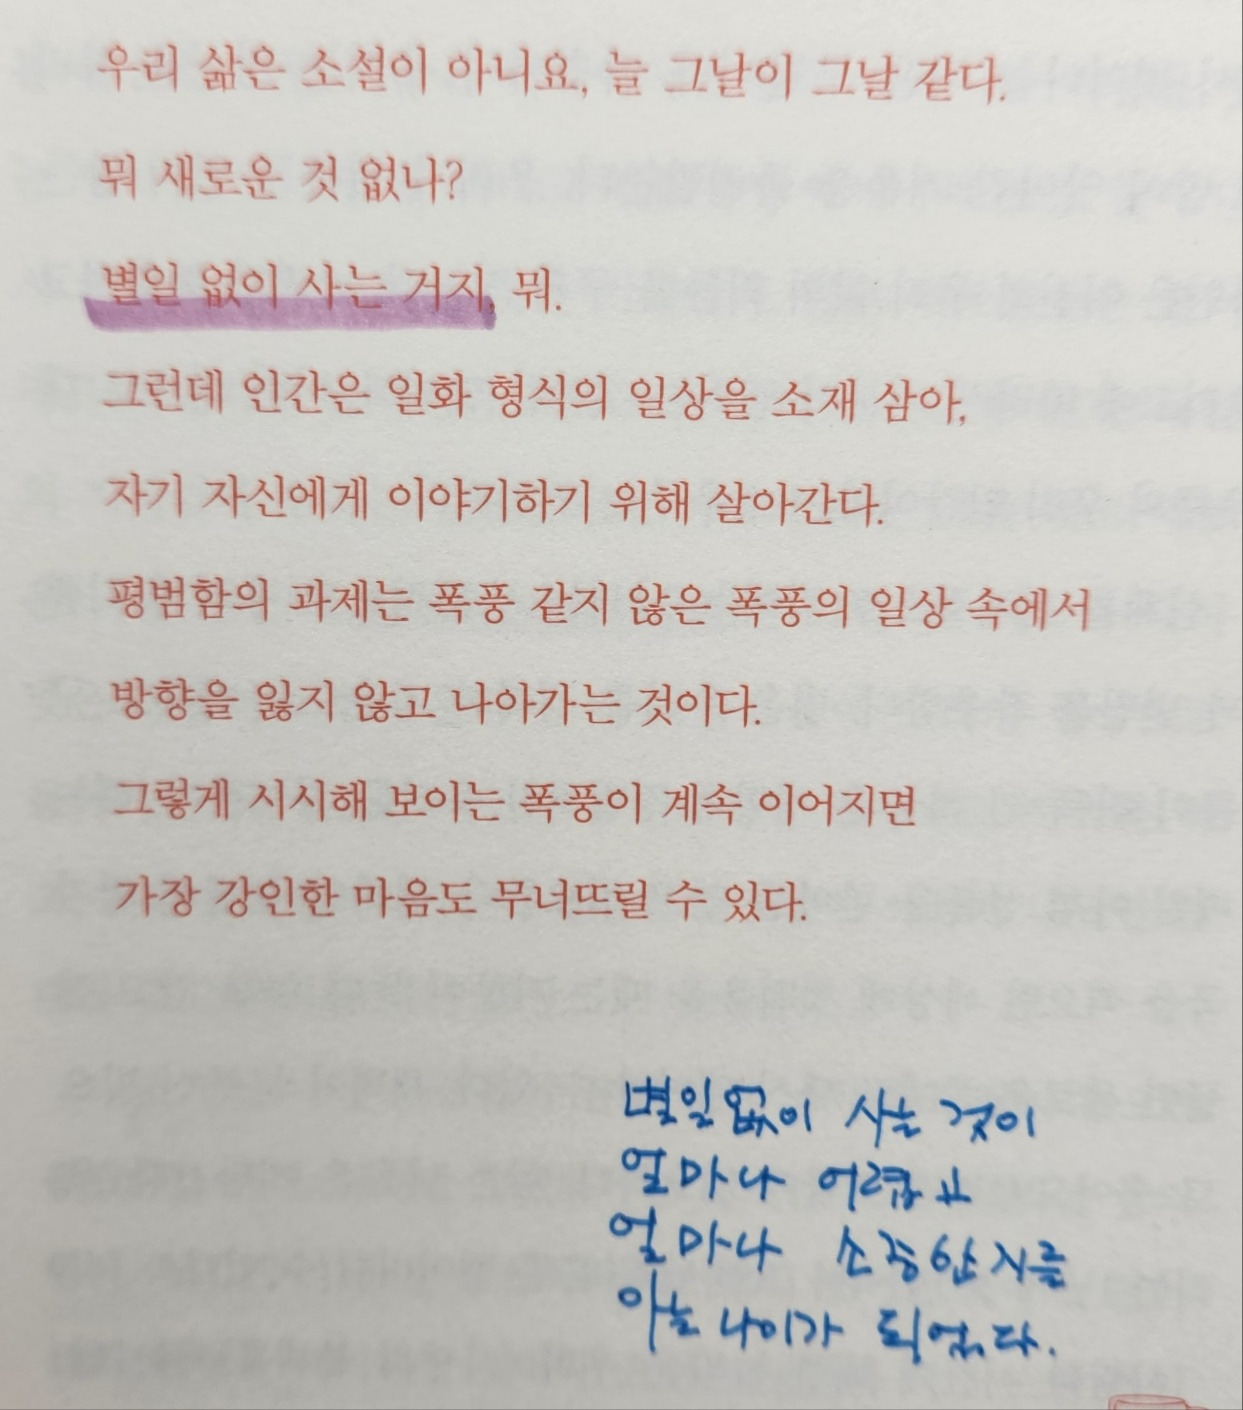 우리 삶은 소설이 아니요, 늘 그날이 그날 같다.
뭐 새로운 것 없나?
별일 없이 사는 거지, 뭐.
그런데 인간은 일화 형식의 일상을 소재 삼아,
자기 자신에게 이야기하기 위해 살아간다.
평범함의 과제는 폭풍 같지 않은 폭풍의 일상 속에서
방향을 잃지 않고 나아가는 것이다.
그렇게 시시해 보이는 폭풍이 계속 이어지면
가장 강인한 마음도 무너뜨릴 수 있다.
별일없이 사는 것이
얼마나 어렵고
얼마나 소중한지를
아는 나이가 되었다.